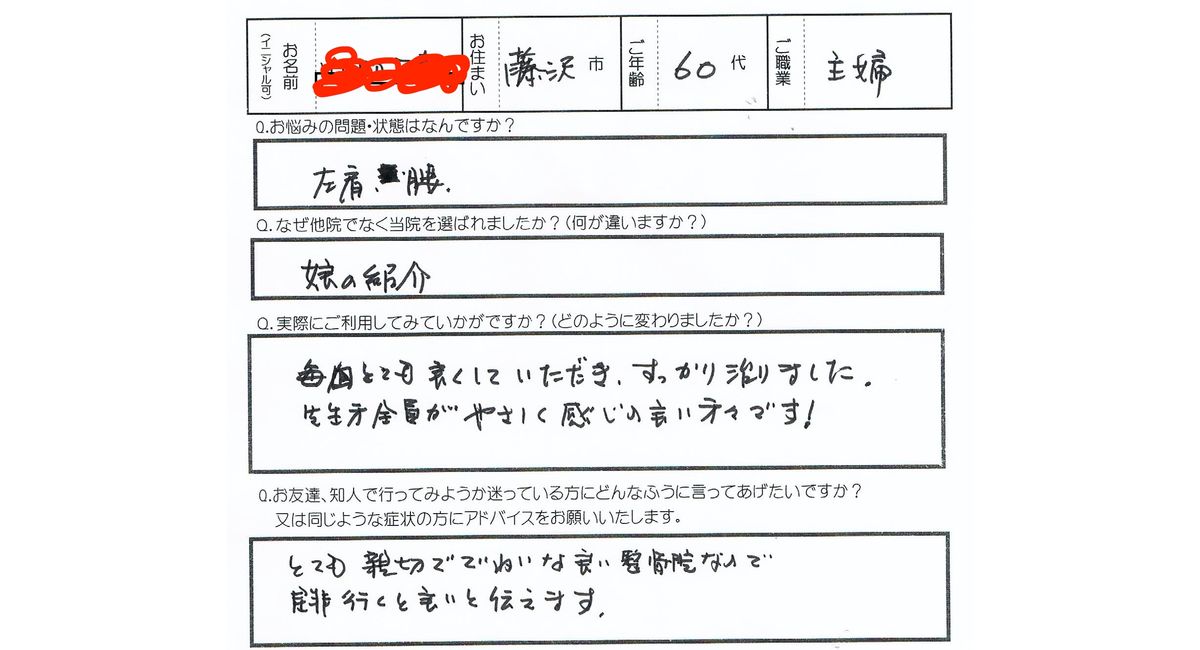 お名前 (イニシャル可) お住まい 藤沢 市 ご年齢 60 代 ご職業 主婦
Q.お悩みの問題・状態はなんですか?
左肩、 腰.
Q.なぜ他院でなく当院を選ばれましたか?(何が違いますか?)
娘の紹介
Q.実際にご利用してみていかがですか?(どのように変わりましたか?)
毎回とても良くしていただき、すっかり治りました.
先生方全員がやさしく感じの良い方々です!
Q.お友達、知人で行ってみようか迷っている方にどんなふうに言ってあげたいですか?
又は同じような症状の方にアドバイスをお願いいたします。
とても親切でていねいな良い整骨院なので
是非行くと良いと伝えます.